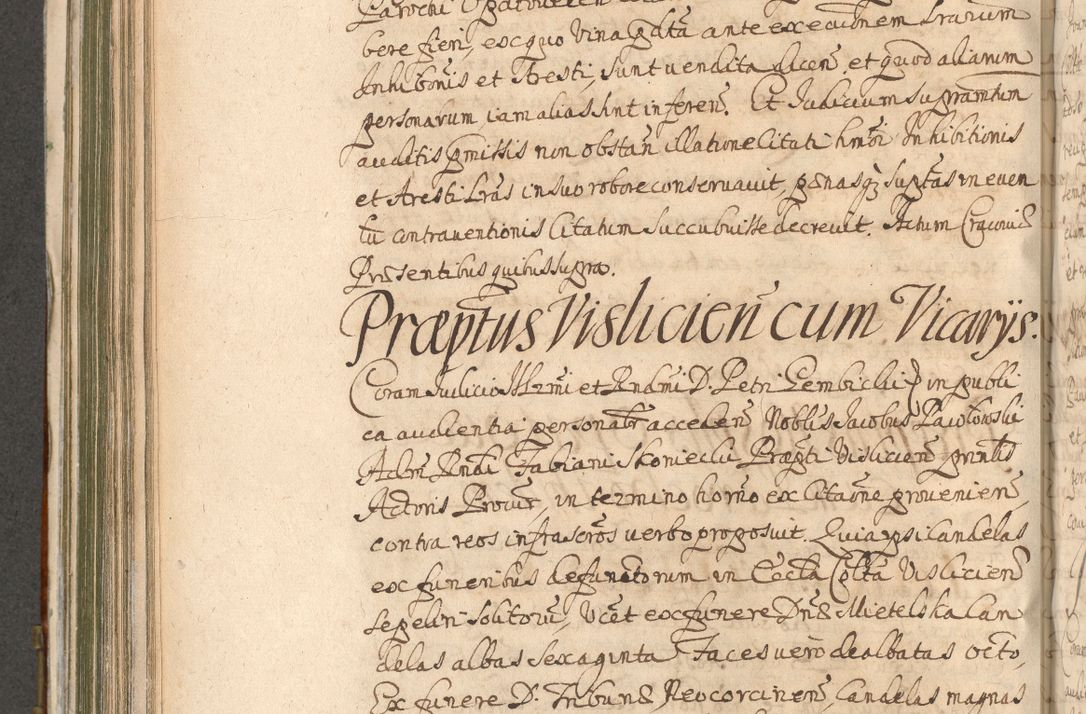 Parochi
bere fieri, ex quo Vina pdta ante executionem Lrarum
Inhibonis et Aresti, sunt vendita dicen et quod aliarum
personarum iam alias sint inferen. Et Iudicium supramtum
auditis pmissis non obstan illatione litati hmoi Inhibitionis
et Aresti Lras in suo robore conservavit, pænasq; suptas in even
tu contraventionis Citatum succubuisse decrevit. Actum Cracoviæ
Præsentibus quibus supra.
Præptus Visliciens cum Vicarijs.
Coram Iudicio Illrmi et Rndmi D. Petri Gembicki in publi
ca audientia personalr acceden Noblis Iacobus Pacolowski
Admr Rndi Fabiani Skoniecki Præpti Visliciens prinlis
Actoris Procur, in termino horno ex Citaone provenien,
contra reos infrascros verbo proposuit. Quia ipsi Candelas
ex funeribus defunctorum in Eccla Collta Vislicien
sepeliri solitorum, Vcet ex funere Dnæ Mietelska Can
delas albas sexaginta Faces vero dealbatas octo,
Ex funere D. Tribunæ Neocorcinens, Candelas magnas